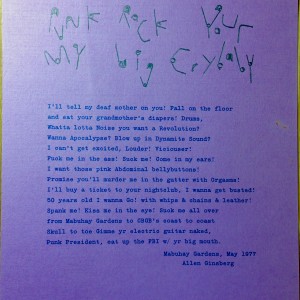 PUNK ROCK YOUR
MY big CRYbAbY
I'll tell my deaf mother on you! Fall on the floor
and eat your grandmother's diapers! Drums,
Whatta lotta Noize you want a Revolution?
Wanna Apocalypse? Blow up in Dynamite Sound?
I can't get excited, Louder! Viciouser!
Fuck me in the ass! Suck me! Come in my ears!
I want those pink Abdominal bellybuttons!
Promise you'll murder me in the gutter with Orgasms!
I'll buy a ticket to your nightclub, I wanna get busted!
50 years old I wanna Go! with whips & chains & leather!
Spank me! Kiss me in the eye! Suck me all over
from Mabuhay Gardens to CBGB's coast to coast
Skull to toe Gimme yr electric guitar naked,
Punk President, eat up the FBI w/ yr big mouth.
Mabuhay Gardens, May 1977
Allen Ginsberg